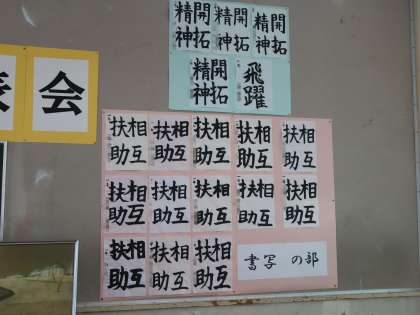 会
開拓
精神
開拓
精神
開拓
精神
開拓
精神
飛躍
相互
扶助
相互
扶助
相互
扶助
相互
扶助
相互
扶助
相互
扶助
相互
扶助
相互
扶助
相互
扶助
相互
扶助
相互
扶助
相互
扶助
相互
扶助
書写 の部